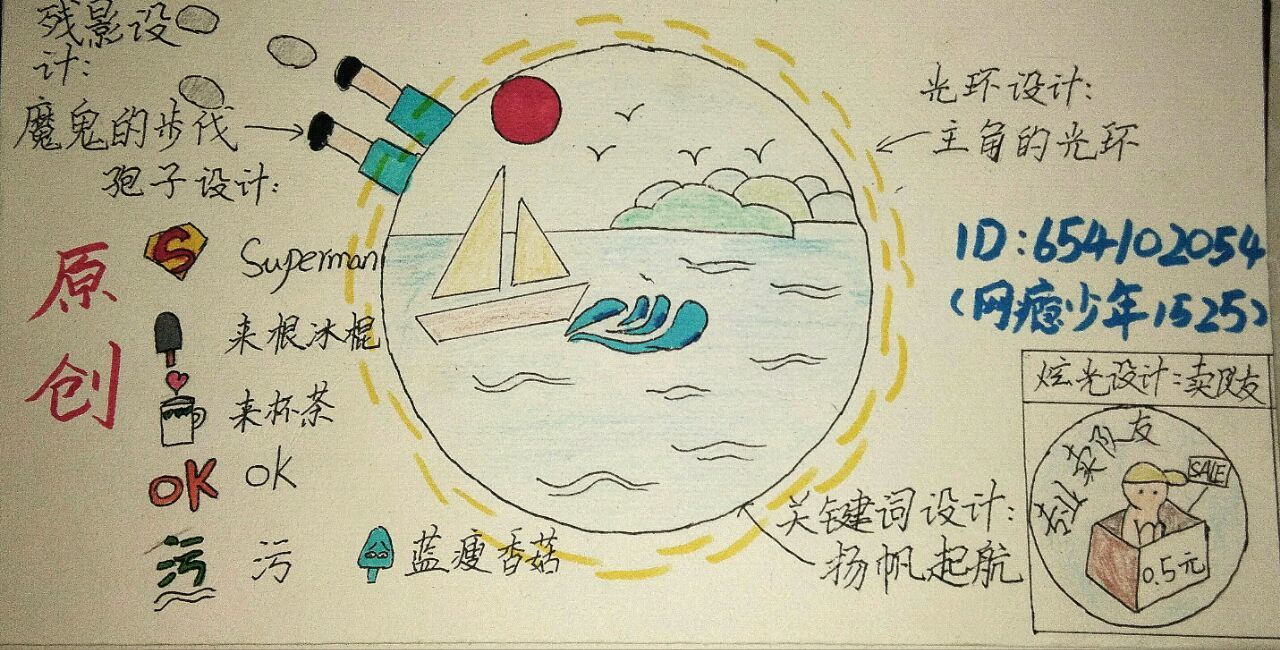 残影设
计:
魔鬼的步伐
孢子设计:
原创
S
Superman
来根冰棍
来杯茶
OK
OK
污
污
蓝瘦香菇
光环设计:
主角的光环
ID:654102054
(网瘾少年1525)
关键词设计:
扬帆起航
炫光设计:卖队友
专业卖队友
SALE
0.5元